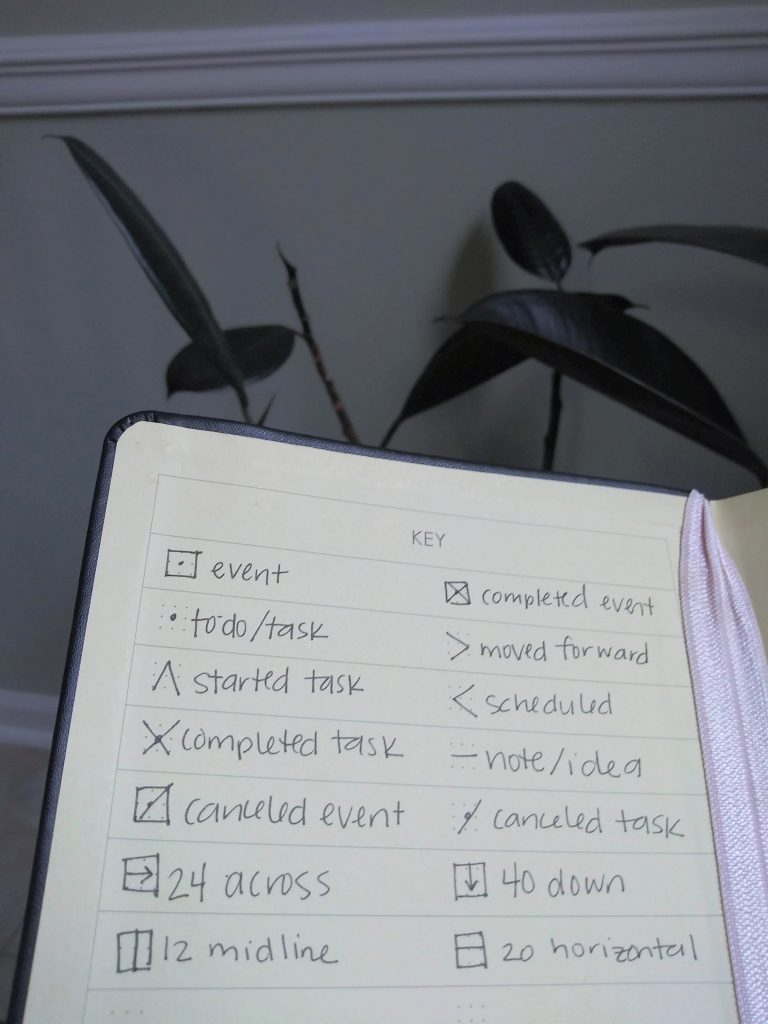 KEY
event
completed event
to do/task
> moved forward
started task
< scheduled
completed task
— note/idea
canceled event
canceled task
→ 24 across
↓ 40 down
12 midline
20 horizontal